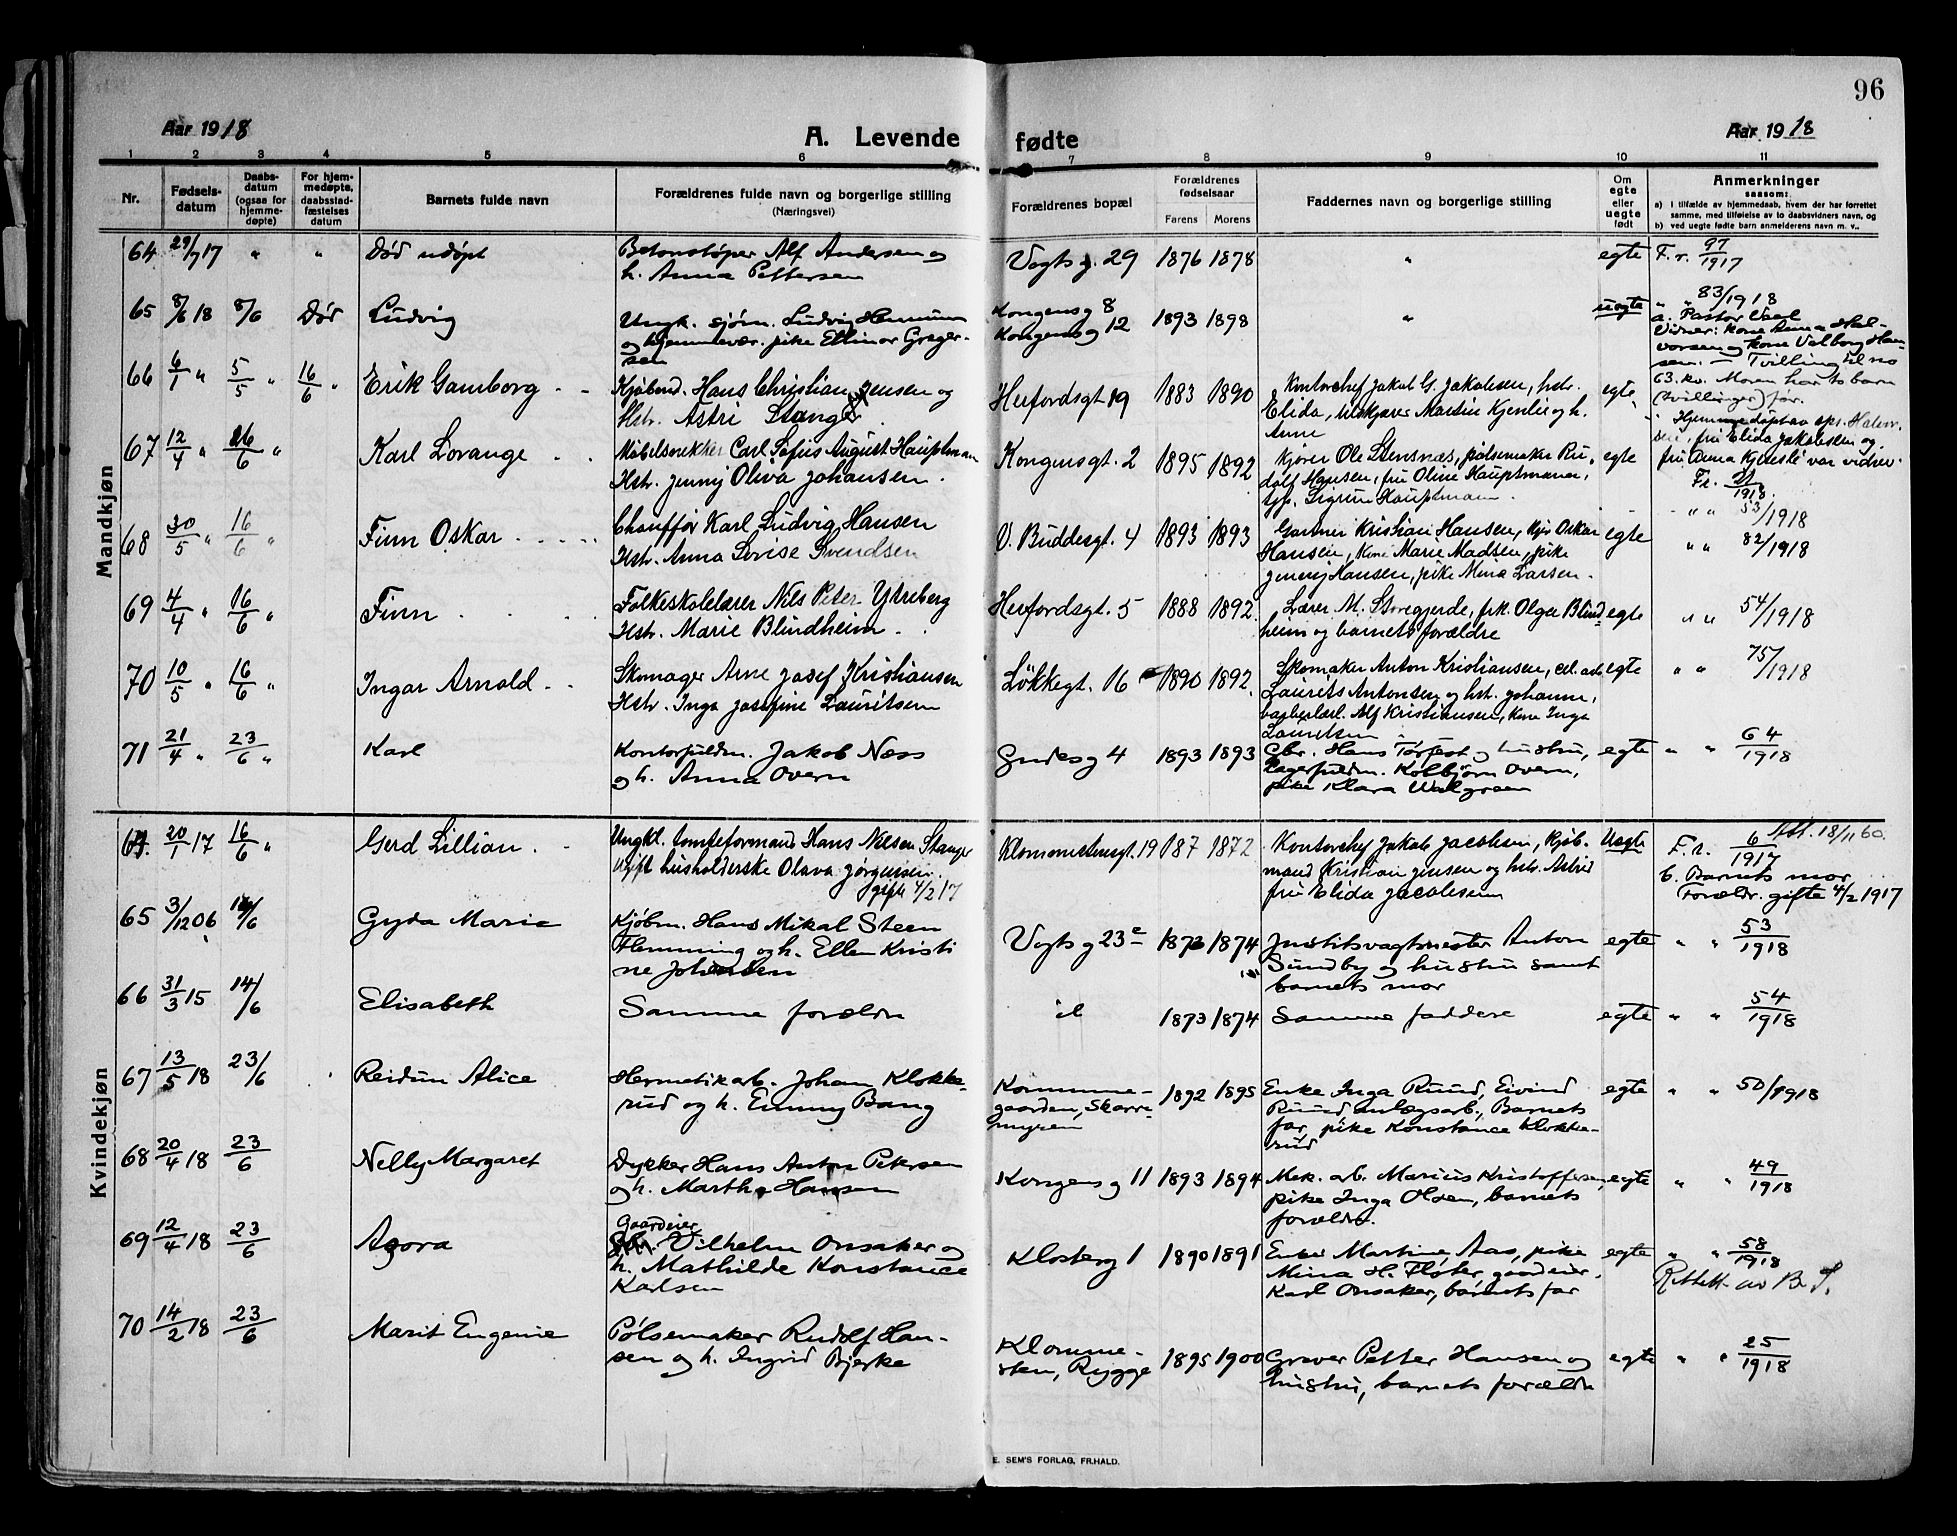 96
Aar 1918
A. Levende fødte
Aar 1918
1 2 3 4 5 6 7 8 9 10 11
Nr.
Fødsels-
datum
Daabs-
datum
(ogsaa for
hjemme-
døpte)
For hjem-
medøpte,
daabsstad-
fæstelses
datum
Barnets fulde navn
Forældrenes fulde navn og borgerlige stilling
(Næringsvei)
Forældrenes bopæl
Forældrenes
fødselsaar
Farens Morens
Faddernes navn og borgerlige stilling
Om
egte
eller
uegte
født
Anmerkninger
saasom:
a) I tilfælde av hjemmedaab, hvem der har forrettet
samme, med tilføielse av to daabsvidners navn, og
b) ved uegte fødte barn anmelderens navn m. v..
Mandkjøn
64 29/7 17 " " Død udøpt
Betonstøper Alf Andersen og
h. Anna Pettersen
Vogts g. 29 1876 1878 " egte F. r. 97/1917
65 8/6 18 8/6 Død Ludvig
Ungk. sjøm. Ludvig Hennum
og hjemmevær. pike Ellinor Greger-
sen
Kongensg 8
Kongensg 12 1893 1898 " uegte
" " 83/1918
a. Pastor Vaal
Vidner: kone Anna Hal-
vorsen og kone Valborg Han-
sen. — Tvilling til no
63. kv. Moren har to barn
(tvillinger) før.
66 6/1 " 5/5 " 16/6 " Erik Gamborg
Kjøbmd. Hans Christian Jensen og
Hstr. Astri Stanger
Herfordsgt 19 1883 1890
Kontorchef Jakob G. Jakobsen, hstr.
Elida, Martin Kjenlie og h.
Anne
egte
Hjemmedøpt av spr. Halvor-
sen, fru Elida Jakobsen og
fru Anna var vidner.
Fr. /1918
67 12/4 " 26/6 " Karl Lorange
Møbelsnekker Carl Sofus August Hauptman
Hstr. Jenny Oliva Johansen.
Kongensgt. 2 1895 1892
Kjører Ole Stensnæs, pølsemaker Ru-
dolf Hansen, fru Oline Hauptmann,
Sigrun Hauptmann.
egte " " 53/1918
68 30/5 " 16/6 " Finn Oskar
Chauffør Karl Ludvig Hansen
Hstr. Anna Lovise Svendsen
V. Buddesgt. 4 1893 1893
Gartner Kristian Hansen, Oskar
Hansen, kone Marie Madsen, pike
Jenny Hansen, pike Mina Larsen.
egte " " 82/1918
69 4/4 " 16/6 " Finn
Folkeskolelærer Nils Peter Ytreberg
Hstr. Marie Blindheim.
Herfordsgt. 5 1888 1892.
Lærer M. Storegjerde, frk. Olga Blind-
heim og barnets forældre
egte " " 54/1918
70 10/5 " 16/6 " Ingar Arnold
Skomager Arne Josef Kristiansen
Hstr. Inga Josefine Lauritsen
Løkkegt. 16 1890 1892.
Skomaker Anton Kristiansen,
Laurits Antonsen og hst. Johanne,
Alf Kristiansen, kone Inga
Lauritsen.
egte " " 75/1918
71 21/4 " 23/6 " Karl
Kontorfuldm. Jakob Næss
og h. Anna Overn
Gudesg 4 1893 1893
Cbr. Hans Torfest og hustru,
Lagerfuldm. Kolbjørn Overn,
pike Klara Walgreen
egte " " 64/1918
Kvindekjøn
64. 20/1 17 16/6 " Gerd Lillian
Ungkl. tomteformand Hans Nielsen Stanger
Ugift husholderske Olava Jørgensen.
gift 4/2 17
Klommestensgt. 19 187 1872
Kontorchef Jakob Jacobsen, Kjøb-
mand Kristian Jensen og hstr. Astrid
fru Elida Jacobsen
Uegte
F. r. 6/1917 Att. 18/11 60.
b. Barnets mor
Forældr. gifte 4/2 1917
65 3/12 06 14/6 Gyda Marie
Kjøbm. Hans Mikal Steen
Flemming og h. Ellen Kristi
ne Johansen
Vogts g 23 e 1873 1874
Justitsvagtmester Anton
Sundby og hustru samt
barnets mor
egte " " 53/1918
66 31/3 15 14/6 Elisabeth
Samme foreldre
id 1873 1874 Samme faddere
egte " " 54/1918
67 13/5 18 23/6 Reidun Alice
Hermetikarb. Johan Klokke-
rud og h. Emmy Bang
Kommune-
gaarden, Skarre-
myren
1892 1895
Enke Inga Ruud, Eivind
Ruud, anlægsarb., Barnets
far, pike Konstance Klokke-
rud
egte " " 50/1918
68 20/4 18 23/6 Nelly Margaret
Dykker Hans Anton Petersen
og h. Martha Hansen
Kongens g 11 1893 1894
Mek. arb. Marius Kristoffersen,
pike Inga Olsen, barnets
foreldre.
egte " " 49/1918
69 12/4 18 23/6 Agora
Gaardeier
Vilhelm Onsaker og
h. Mathilde Konstance
Karlsen
Klosterg 1 1890 1891
Enke Martine Aas, pike
Mina H. Fløter, gaardeier
Karl Onsaker, barnets far
egte " " 58/1918
Rettet av B. F.
70 14/2 18 23/6 Marit Eugenie
Pølsemaker Rudolf Han-
sen og h. Ingrid Bjerke
Klomme-
sten, Rygge
1895 1900
Graver Petter Hansen og
hustru, barnets foreldre
egte " " 25/1918
E. SEM'S FORLAG, FR.HALD.